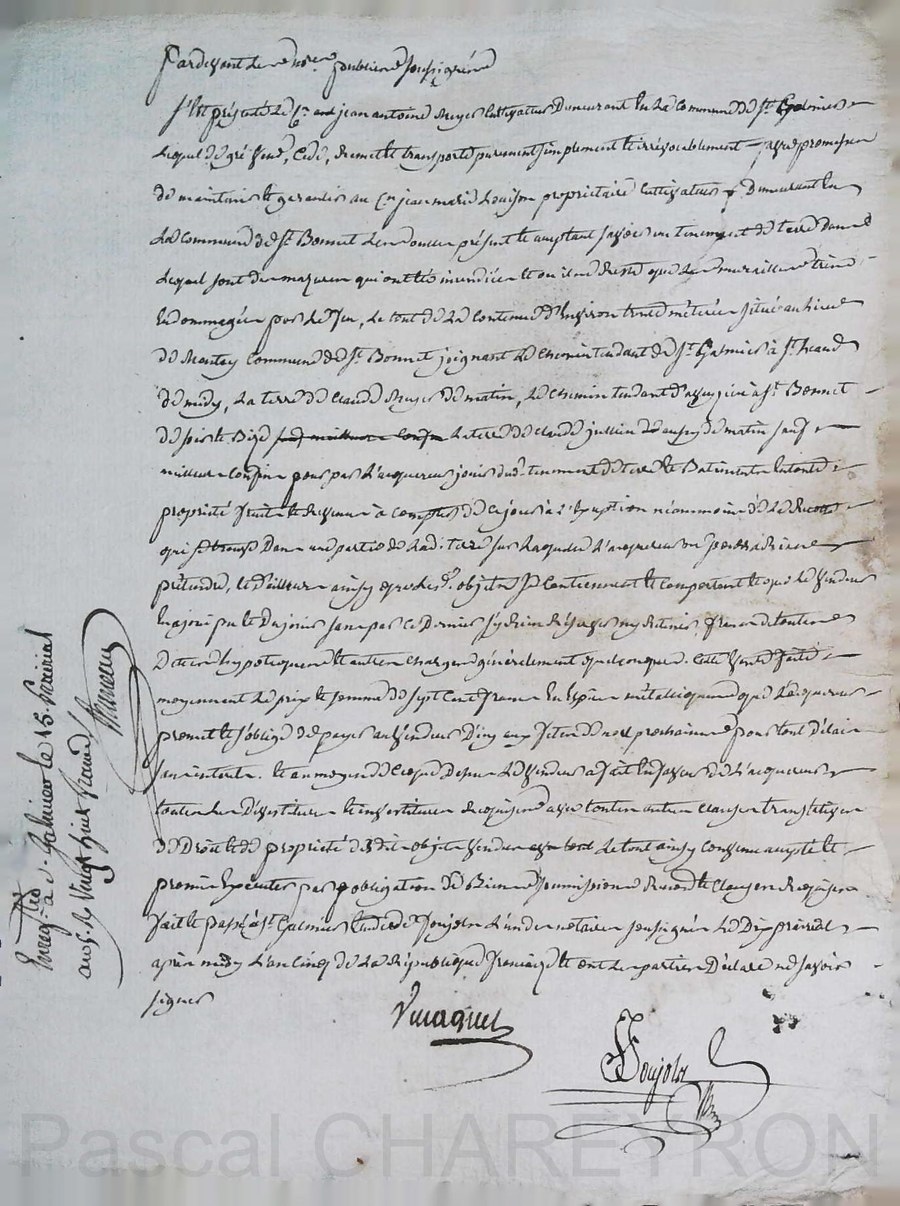 Pardevant les no.res publics soussignés
S'est présenté le C.en jean antoine cultivateur Demeurant en la commune de St. Galmier
Lequel de gré vend, cede, remet et transporte purement simplement et irrévocablement avec promesse
de maintenir et garantir au C.en jean marie propriétaire cultivateur Demeurant en
La commune de St. Bonnet présent et acceptant savoir un tenement de terre dans
Lequel sont des mazures qui ont été incendiées et où il ne reste que les murailles très
Endommagées par le feu, Le tout de la contenue d'environ trente métérées situé au lieu
de commune de St. Bonnet joignant le chemin tendant de St. Galmier à St.
de midy, La terre de Claude de matin, Le chemin tendant à St. Bonnet
de soir et Bize La terre de Claude jullien de matin sauf
meilleurs confins pour par l'acquereur jouir dud. tenement de terre et Batiments en toute
propriété fruits et revenus à compter de ce jour à l'exeption néanmoins de la Recolte
qui se trouve dans une partie de lad. terre sur laquelle l'acquereur ne pourra rien
prétendre, et d'ailleurs ainsy que lesd. objets se contiennent et comportent et que le vendeur
En a joui pu et du jouir sans par ce dernier s'y rien réserver ny retenir, francs de toutes
Dettes hypoteques et autres charges généralement quelconques. Cette vente faite
moyennant le prix et somme de sept cent francs en espèces métalliques que l'acquereur
promet et s'oblige de payer au vendeur D'icy aux fêtes de noel prochaines pour tout délai
sans intérêt. Et au moyen de ce que dessus le vendeur a fait en faveur de l'acquereur
toutes les Divestitures et investitures requises avec toutes autres clauses translatives
de Droit et de propriété desdits objets vendus Le tout ainsy convenu accepté et
promis exécuter par obligation de Biens soumissions Renon. et clauses Requises
fait et passé à St. Galmier Etude de Foujols L'un des notaires soussigné Le Dix prairial
après midy L'an cinq de la République française et ont les parties Déclaré ne savoir
signer
Foujols
Enreg.tré à St. Galmier le 15. Prairial
an 5. Reçu Vingt huit francs
Pascal CHAREYRON